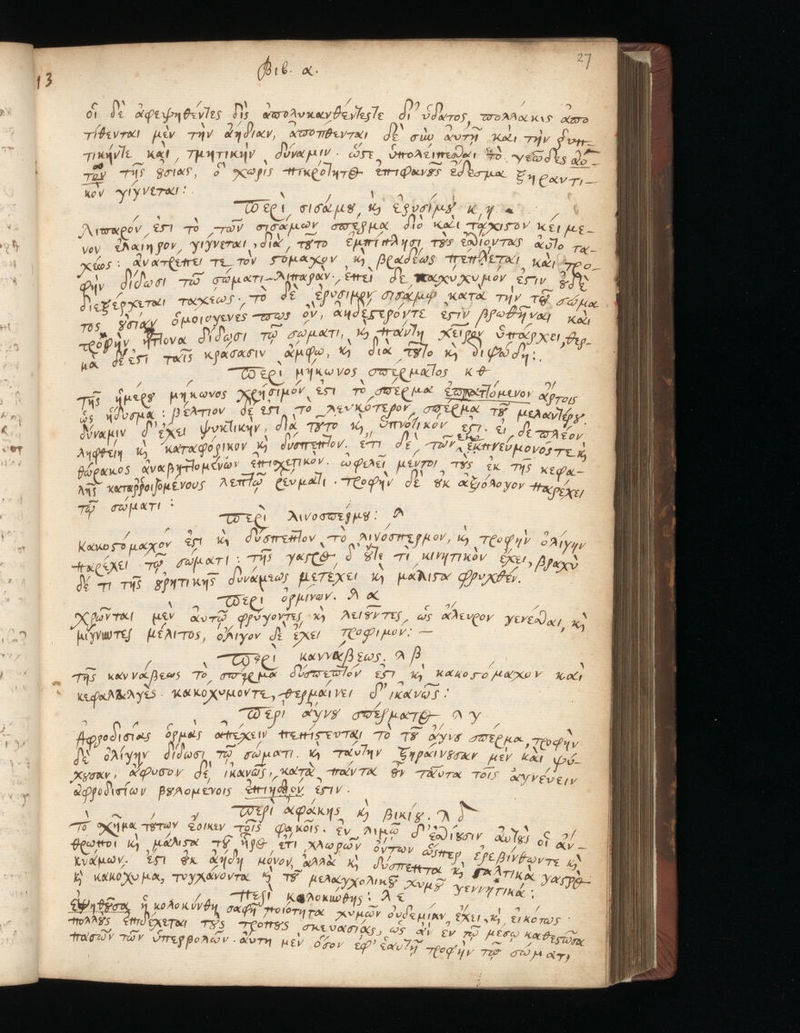 13
27
Βιβ. α.
οἱ δὲ ἀφεψηθέντες δὶς ἀπογλυκανθέντεςτε δι' ὕδατος, πολλάκις ἀπο
τίθενται μὲν τὴν ἀηδίαν, ἀποτίθενται δὲ σὺν αὐτῇ καὶ τὴν ῥυπ-
τικήντε καὶ τμητικὴν δύναμιν. ὥστε ὑπολείπεσθαι τὸ γεῶδες αὐ-
τῶν τῆς οὐσίας, ὃ χωρὶς πικρότητος ἐπιφανοῦς ἔδεσμα ξηραντι-
κὸν γίγνεται:
Περὶ σισάμου, κ ἐρυσίμου κη
λιπαρόν, ἐστι τὸ τῶν σησάμων σπέρμα διὸ καὶ τάχιστον κείμε-
νον ἐλαιηρον, γίγνεται, διὰ τοῦτο ἐμπίπλησι τοὺς ἐσθίοντας αὐτὸ τα-
χέως: ἀνατρέπει τε τὸν στόμαχον, κ βραδέως πέπτεται, καὶ τρο-
φὴν δίδωσι τῷ σώματι λιπαράν. ἐπεὶ δὲ παχύχυμόν ἐστιν οὐδὲ
διεξέρχεται ταχέως. τὸ δὲ ἐρύσιμον σισάμῳ κατὰ τὴν τοῦ σώμα
τος οὐσίαν ὁμοιογενές πως ὂν, ἀηδέστερόντε ἐστὶν βρωθῆναι καὶ
τροφὴν ἥττονα δίδωσι τῷ σώματι, κ πάντη χεῖρον ὑπάρχει, θερ-
μὰ δέ ἐστι ταῖς κράσεσιν ἄμφω, κ διὰ τοῦτο κ διψώδη:.
Περὶ μήκωνος σπέρματος κθ
τῆς ἡμέρου μήκωνος χρήσιμόν ἐστι τὸ σπέρμα ἐπιπαττόμενον ἄρτοις
ὡς ἥδυσμα: βέλτιον δέ ἐστι τὸ λευκότερον σπέρμα τοῦ μελαντέρου.
δύναμιν δ' ἔχει ψυκτικὴν, διὰ τοῦτο κ ὑπνοτικόν ἐστι. εἰ δὲ πλέον
ληφθείη κ καταφορικὸν κ δύσπεπτον. ἔτι δὲ τῶν ἐκ πνεύμονός τε κ
θώρακος ἀναβηττομένων ἐπισχετικὸν. ὠφελεῖ μέντοι τοὺς ἐκ τῆς κεφα-
λῆς καταρροιζομένους λεπτῷ ῥεύματι. τροφὴν δὲ οὐκ ἀξιόλογον παρέχει
τῷ σώματι:
Περὶ λινοσπέρμου: λ
κακοστόμαχόν ἐστι κ δύσπεπτον τὸ λινόσπερμον, κ τροφὴν ὀλίγην
παρέχει τῷ σώματι: τῆς γαστρὸς δ' οὔτε τι κινητικὸν ἔχει, βραχὺ
δέ τι τῆς οὐρητικῆς δυνάμεως μετέχει κ μάλιστα φρυχθέν.
Περὶ ὁρμίνων. λα
χρῶνται μὲν αὐτῷ φρύγοντες κ λειοῦντες, ὡς ἄλευρον γενέσθαι, κ
μίγνυντες μέλιτος, ὀλίγον δὲ ἔχει τροφιμον: –
Περὶ καννάβεως. λβ
τῆς καννάβεως τὸ σπέρμα δύσπεπτόν ἐστι κ κακοστόμαχον καὶ
κεφαλαλγές. κακοχυμόντε, θερμαίνει δ' ἱκανῶς:
Περὶ ἄγνου σπέρματος λγ
Ἀφροδισίας ὁρμὰς ἀπέχειν πεπίστευται τὸ τοῦ ἄγνου σπέρμα, τροφὴν
δὲ ὀλίγην δίδωσι τῷ σώματι. κ ταύτην ξηραίνουσαν μὲν καὶ ψύ-
χουσαν, ἄφυσον δὲ ἱκανῶς, κατὰ πάντα οὖν ταῦτα τοῖς ἁγνεύειν
ἀφροδισίων βουλομένοις ἐπιτήδειον ἐστιν.
Περὶ ἀφάκης κ βικίου. λδ
τὸ σχῆμα τούτων ἔοικεν τοῖς φακοῖς. ἐν λιμῷ δ' ἐσθίουσιν αὐτοὺς οἱ ἄν-
θρωποι κ μάλιστα τοῦ ἦρος ἔτι χλωρῶν ὄντων ὥσπερ ἐρεβίνθωντε κ
κυάμων. ἔστι οὐκ ἀηδῆ μόνον, ἀλλὰ κ δύσπεπτα κ σταλτικὰ γαστρὸς
κ κακόχυμα, τυγχάνοντα κ τοῦ μελαγχολικοῦ χυμοῦ γεννητικά:
Περὶ κολοκύνθης: λε
ἑψηθεῖσα ἡ κολοκύνθη σαφῆ ποιότητα χυμῶν οὐδεμίαν ἔχει, κ εἰκότως
πολλοὺς ἐπιδέχεται τοὺς τρόπους σκευασίας, ὡς ἂν ἐν τῷ μέσῳ καθεστῶσα
πασῶν τῶν ὑπερβολῶν. αὕτη μὲν ὅσον ἐφ' ἑαυτῇ τροφὴν τῷ σώματι